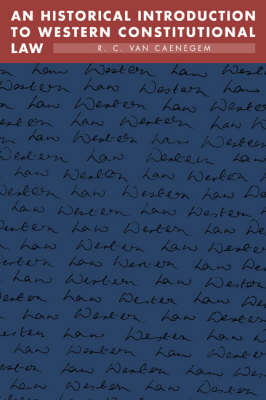 AN HISTORICAL INTRODUCTION
TO WESTERN CONSTITUTIONAL
LAW
R. C. VAN CAENEGEM
Law Western Law Western
Western Law Western
Law Western Law Western
Western Law Western Law
Law Western Law Western
Western Law Western Law
Law Western Law Western
Western Law Western Law
Law Western Law Western
Western Law Western Law
Law Western Law Western
Western Law Western Law
Law Western Law Western
Western Law Western
Law Western Law Western
Western Law Western Law
Law Western Law Western
Law Western Law
Law Western Law Western